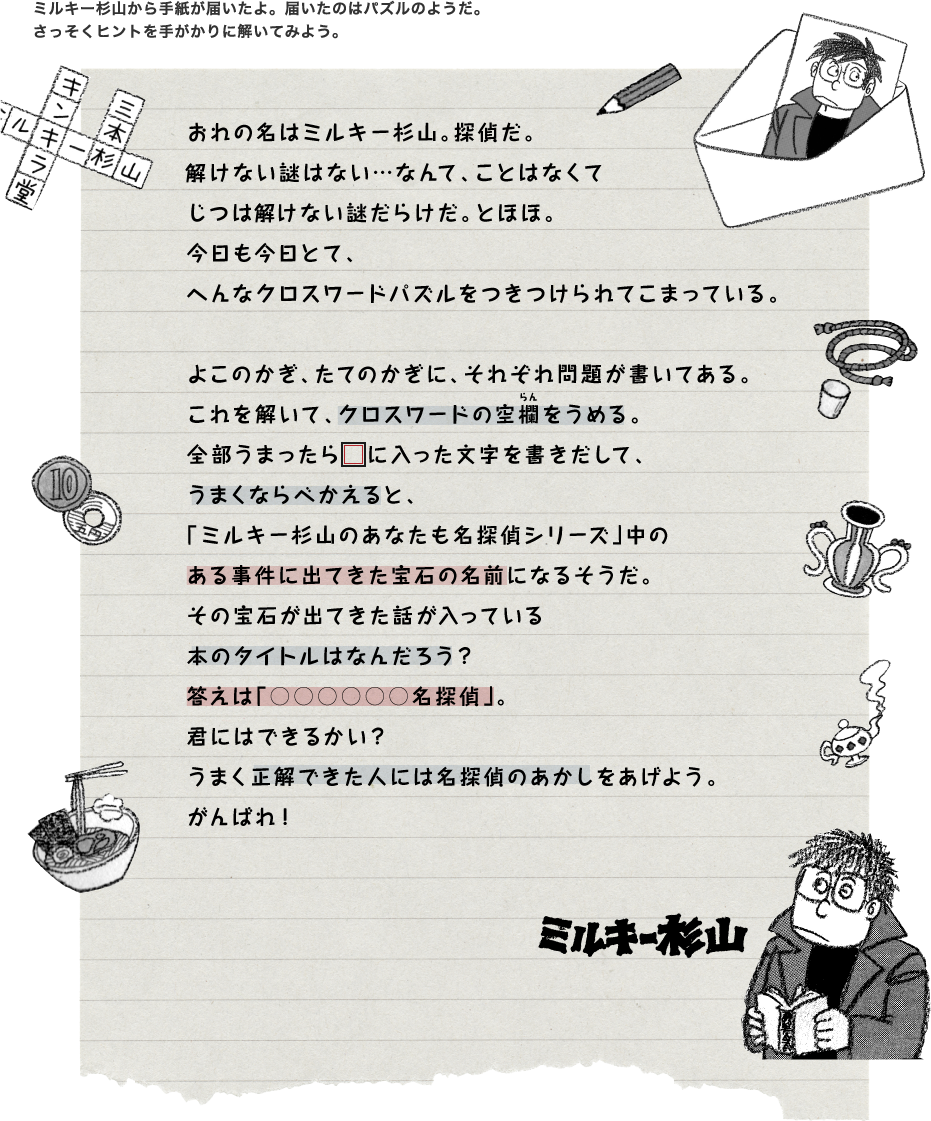 ミルキー杉山から手紙が届いたよ。届いたのはパズルのようだ。
さっそくヒントを手がかりに解いてみよう。
キンキラ堂
ミルキー杉山
三本杉
おれの名はミルキー杉山。探偵だ。
解けない謎はない…なんて、ことはなくて
じつは解けない謎だらけだ。とほほ。
今日も今日とて、
へんなクロスワードパズルをつきつけられてこまっている。
よこのかぎ、たてのかぎに、それぞれ問題が書いてある。
らん
これを解いて、クロスワードの空欄をうめる。
全部うまったら□に入った文字を書きだして、
うまくならべかえると、
「ミルキー杉山のあなたも名探偵シリーズ」中の
ある事件に出てきた宝石の名前になるそうだ。
その宝石が出てきた話が入っている
本のタイトルはなんだろう?
答えは「○○○○○○名探偵」。
君にはできるかい?
うまく正解できた人には名探偵のあかしをあげよう。
がんばれ!
10
五円
ミルキー杉山